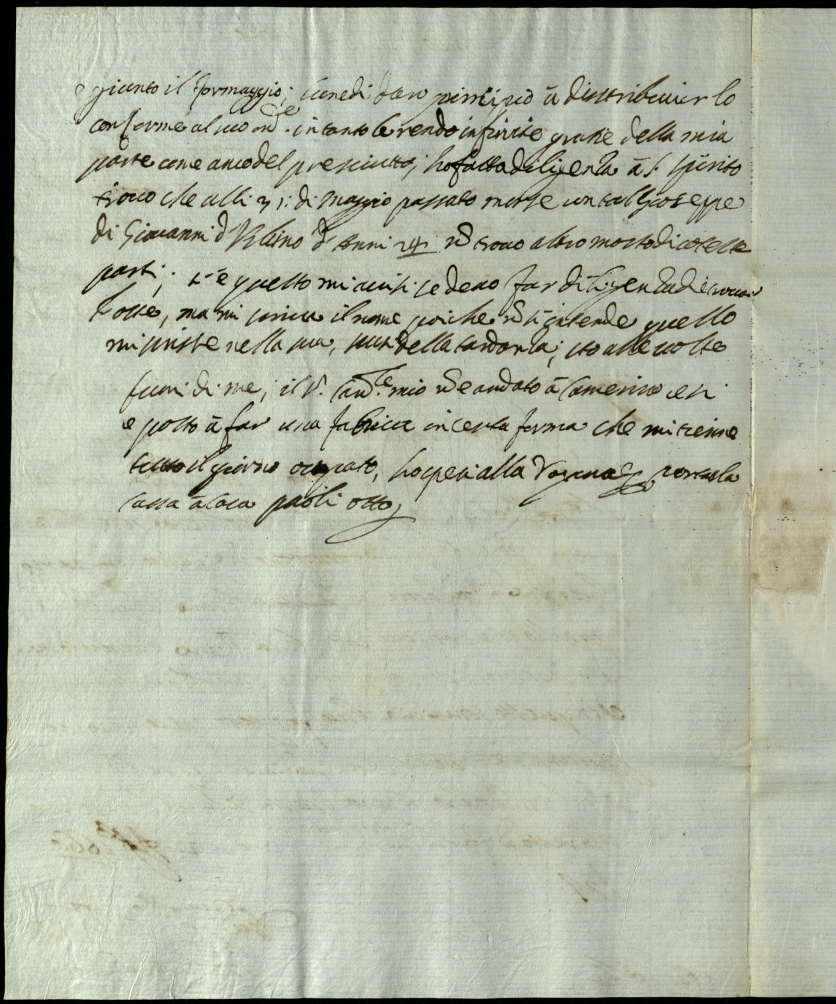 è giunto il formaggio; lunedi daro principio à distribuirlo
conforme al suo ord.e intanto le rendo infinite gratie della mia
parte come anco del presciutto; ho fatta diligenza à S. Spirito
trovo che alli 31: di Maggio passato morse un tal Gioseppe
di Giovanni d Urbino d Anni 24 nè trovo altro morto di coteste
parti; s'è questo mi avisi se devo far diligenza di
fosse, ma mi scriva il nome poiche nō s'intende quello
mi scrisse nella sua, scusi della tardanza; sto alle volte
fuori di me; il S. mio nè andato à Camerino e si
è posto à far una fabrica in certa forma che mi tiene
tutto il giorno occupato, ho spesi alla Dogana e portar la
cassa à casa paoli otto